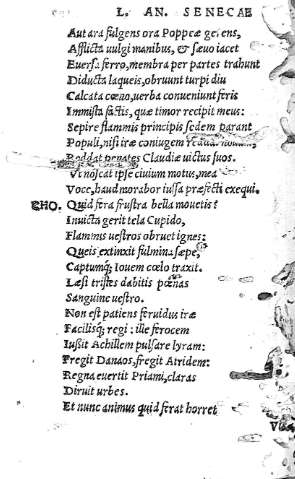 L. AN. SENECAE
Aut ara fulgens ora Poppeæ gerens,
Afflicta uulgi manibus, & sæuo iacet
Euersa ferro, membra per partes trahunt
Diducta laqueis, obruunt turpi diu
Calcata cœno, uerba conueniunt feris
Immista factis, quæ timor recipit meus:
Sepire flammis principis sedem parant
Populi, nisi iræ coniugem
Reddat penates Claudiæ uictus suos.
Vt noscat ipse ciuium motus, mea
Voce, haud morabor iussa præfecti exequi.
CHO. Quid fera frustra bella mouetis?
Inuicta gerit tela Cupido,
Flammis uestros obruet ignes:
Queis extinxit fulmina sæpe,
Captumq; Iouem cœlo traxit.
Læsi tristes dabitis pœnas
Sanguine uestro.
Non est patiens feruidus iræ
Facilisq; regi: ille ferocem
Iußit Achillem pulsare lyram:
Fregit Danaos, fregit Atridem:
Regna euertit Priami, claras
Diruit urbes.
Et nunc animus quid ferat horret